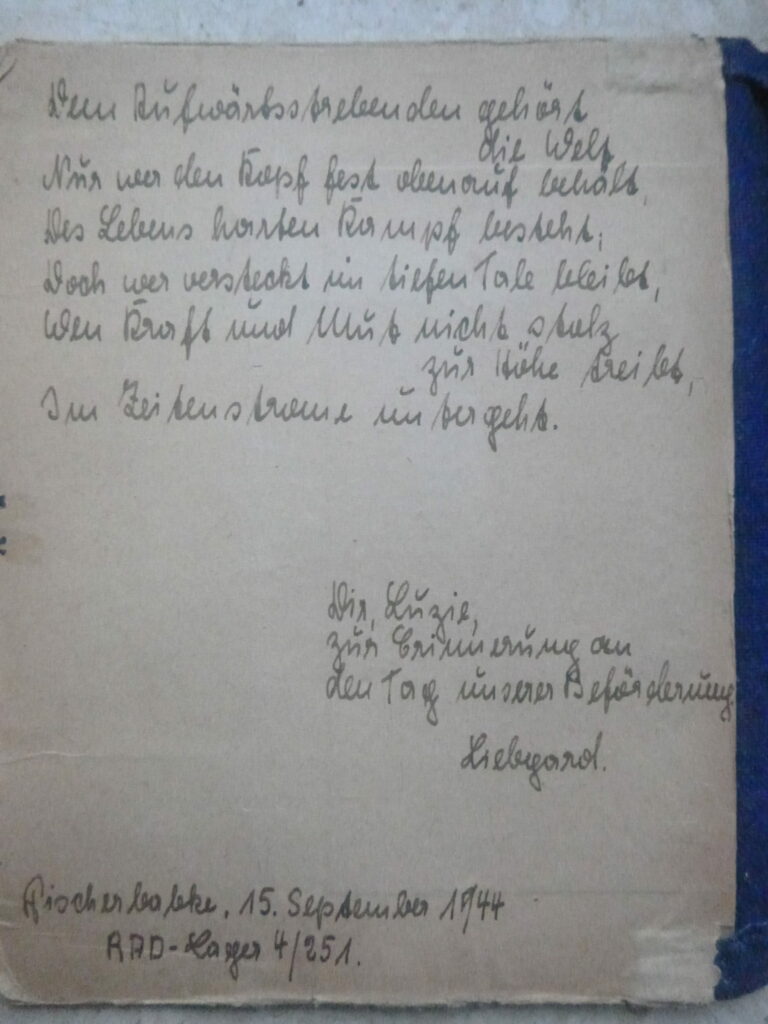 Dem Aufwärtsstrebenden gehört
die Welt,
Nur wer den Kopf fest obenauf behält,
Des Lebens harten Kampf besteht;
Doch wer versteckt im tiefen Tale bleibt,
Wen Kraft und Mut nicht stolz
zur Höhe treibt,
Im Zeitenstrome untergeht.
Dir, Luzie,
zur Erinnerung an
den Tag unserer Beförderung.
Liebgard.
Fischerbabke, 15. September 1944
RAD-Lager 4/251.